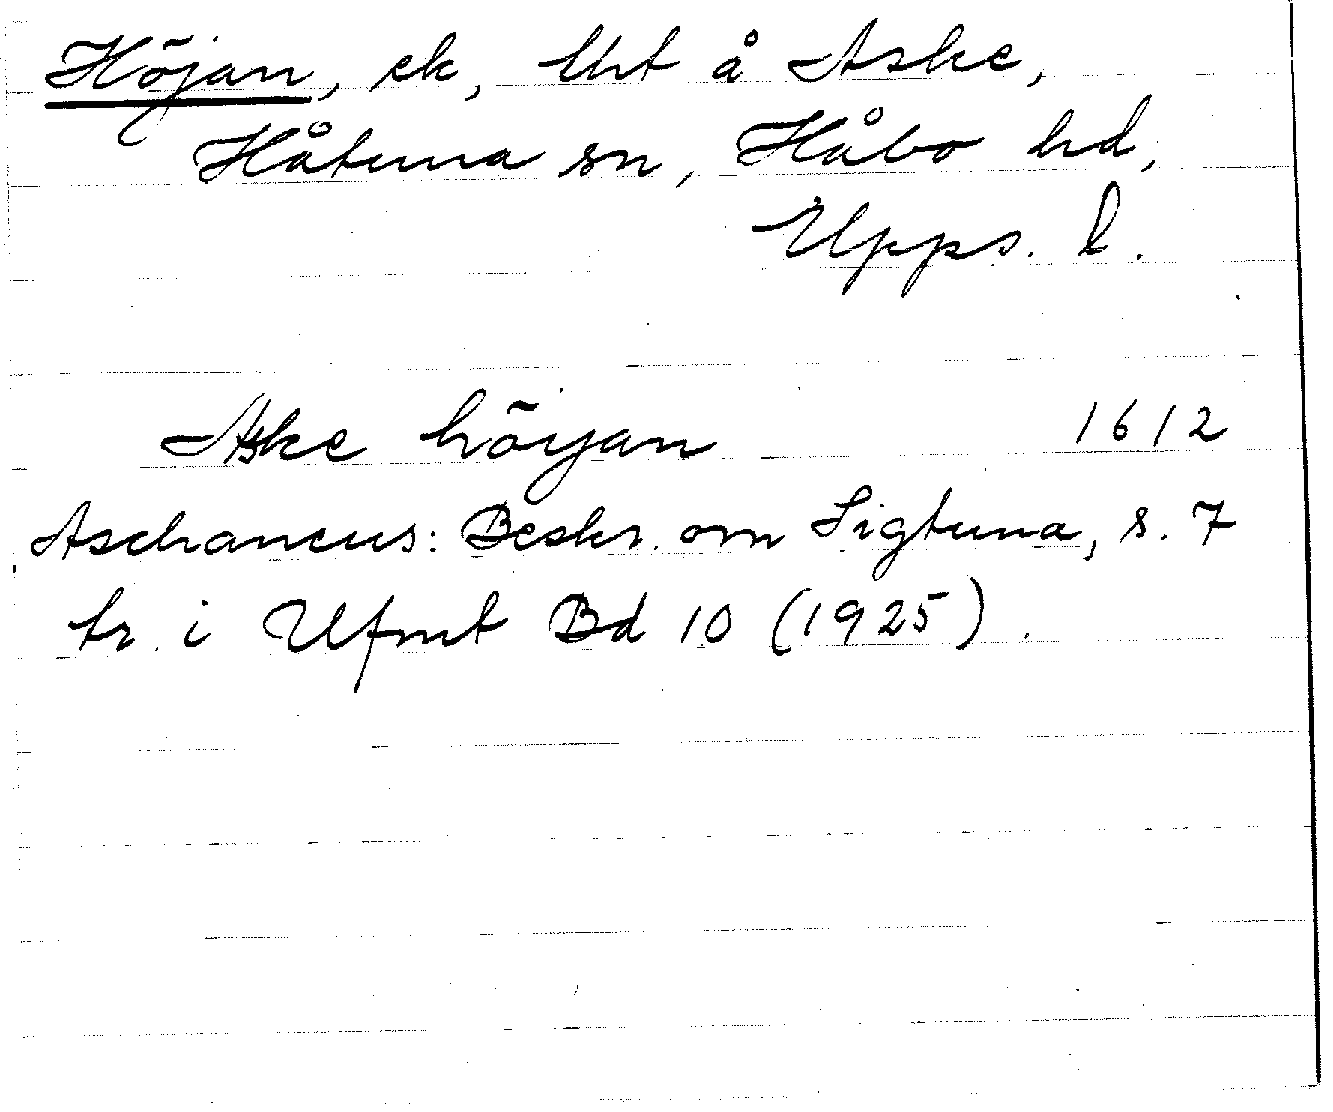 Höjan, ek, Uht å Aske,
Håtuna sn, Håbo hd,
Upps. l.
Aske höyan 1612
Aschaneus: Beskr. om Sigtuna, s. 7
tr. i Ufmt Bd 10 (1925).